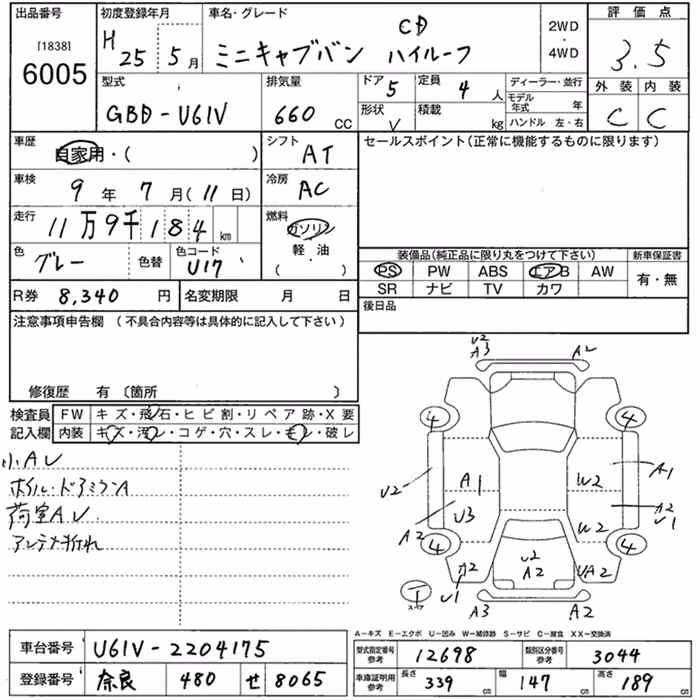 出品番号 初度登録年月 車名・グレード 評価点
[1838] 6005
H 25 5月
CD
ミニキャブバン ハイルーフ
2WD
・
4WD
3.5
外装 内装
C C
型式 GBD-U61V
排気量 660 CC
ドア 5 定員 4 人
形状 V 積載 kg
ディーラー・並行
モデル年式 年
ハンドル 左・右
車歴 自家用・( )
シフト AT
セールスポイント(正常に機能するものに限ります)
車検 9年 7月(11日)
冷房 AC
走行 11万9千184km
燃料 ガソリン
軽・油
( )
色 グレー 色替 色コード U17
装備品(純正品に限り丸をつけて下さい) 新車保証書
PS PW ABS エアB AW
SR ナビ TV カワ
有・無
R券 8,340 円 名変期限 月 日
後日品
注意事項申告欄 (不具合内容等は具体的に記入して下さい)
修復歴 有 〔箇所 〕
検査員 FW キズ・飛石・ヒビ割・リペア跡・X要
記入欄 内装 キズ・汚レ・コゲ・穴・スレ・モレ・破レ
小AU
ホイル・ドアミラーA
荷室AU.
アンテナ折れ
U2
A3 A2
4 4
U2 A1 W2 A1
U3 A2
U1
A2 W2
4 4
A2
U1
U2
A2
UA2
T
スペア
A3 A2
A－キズ E－エクボ U－凹み W－補修跡 S－サビ C－腐食 XX－交換済
車台番号 U61V-2204175
登録番号 奈良 480 せ 8065
型式指定番号 参考 12698 類別区分番号 参考 3044
車庫証明用 参考 長さ 339 cm 幅 147 cm 高さ 189 cm